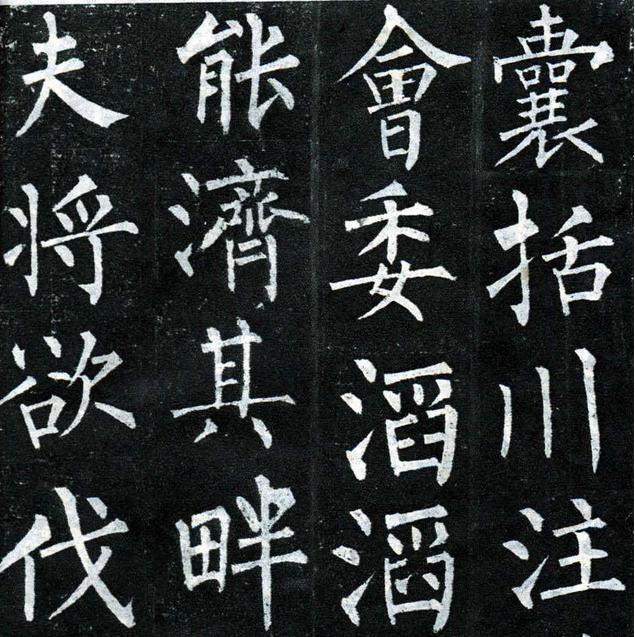 囊括川注
會委滔滔
能濟其畔
夫将欲伐